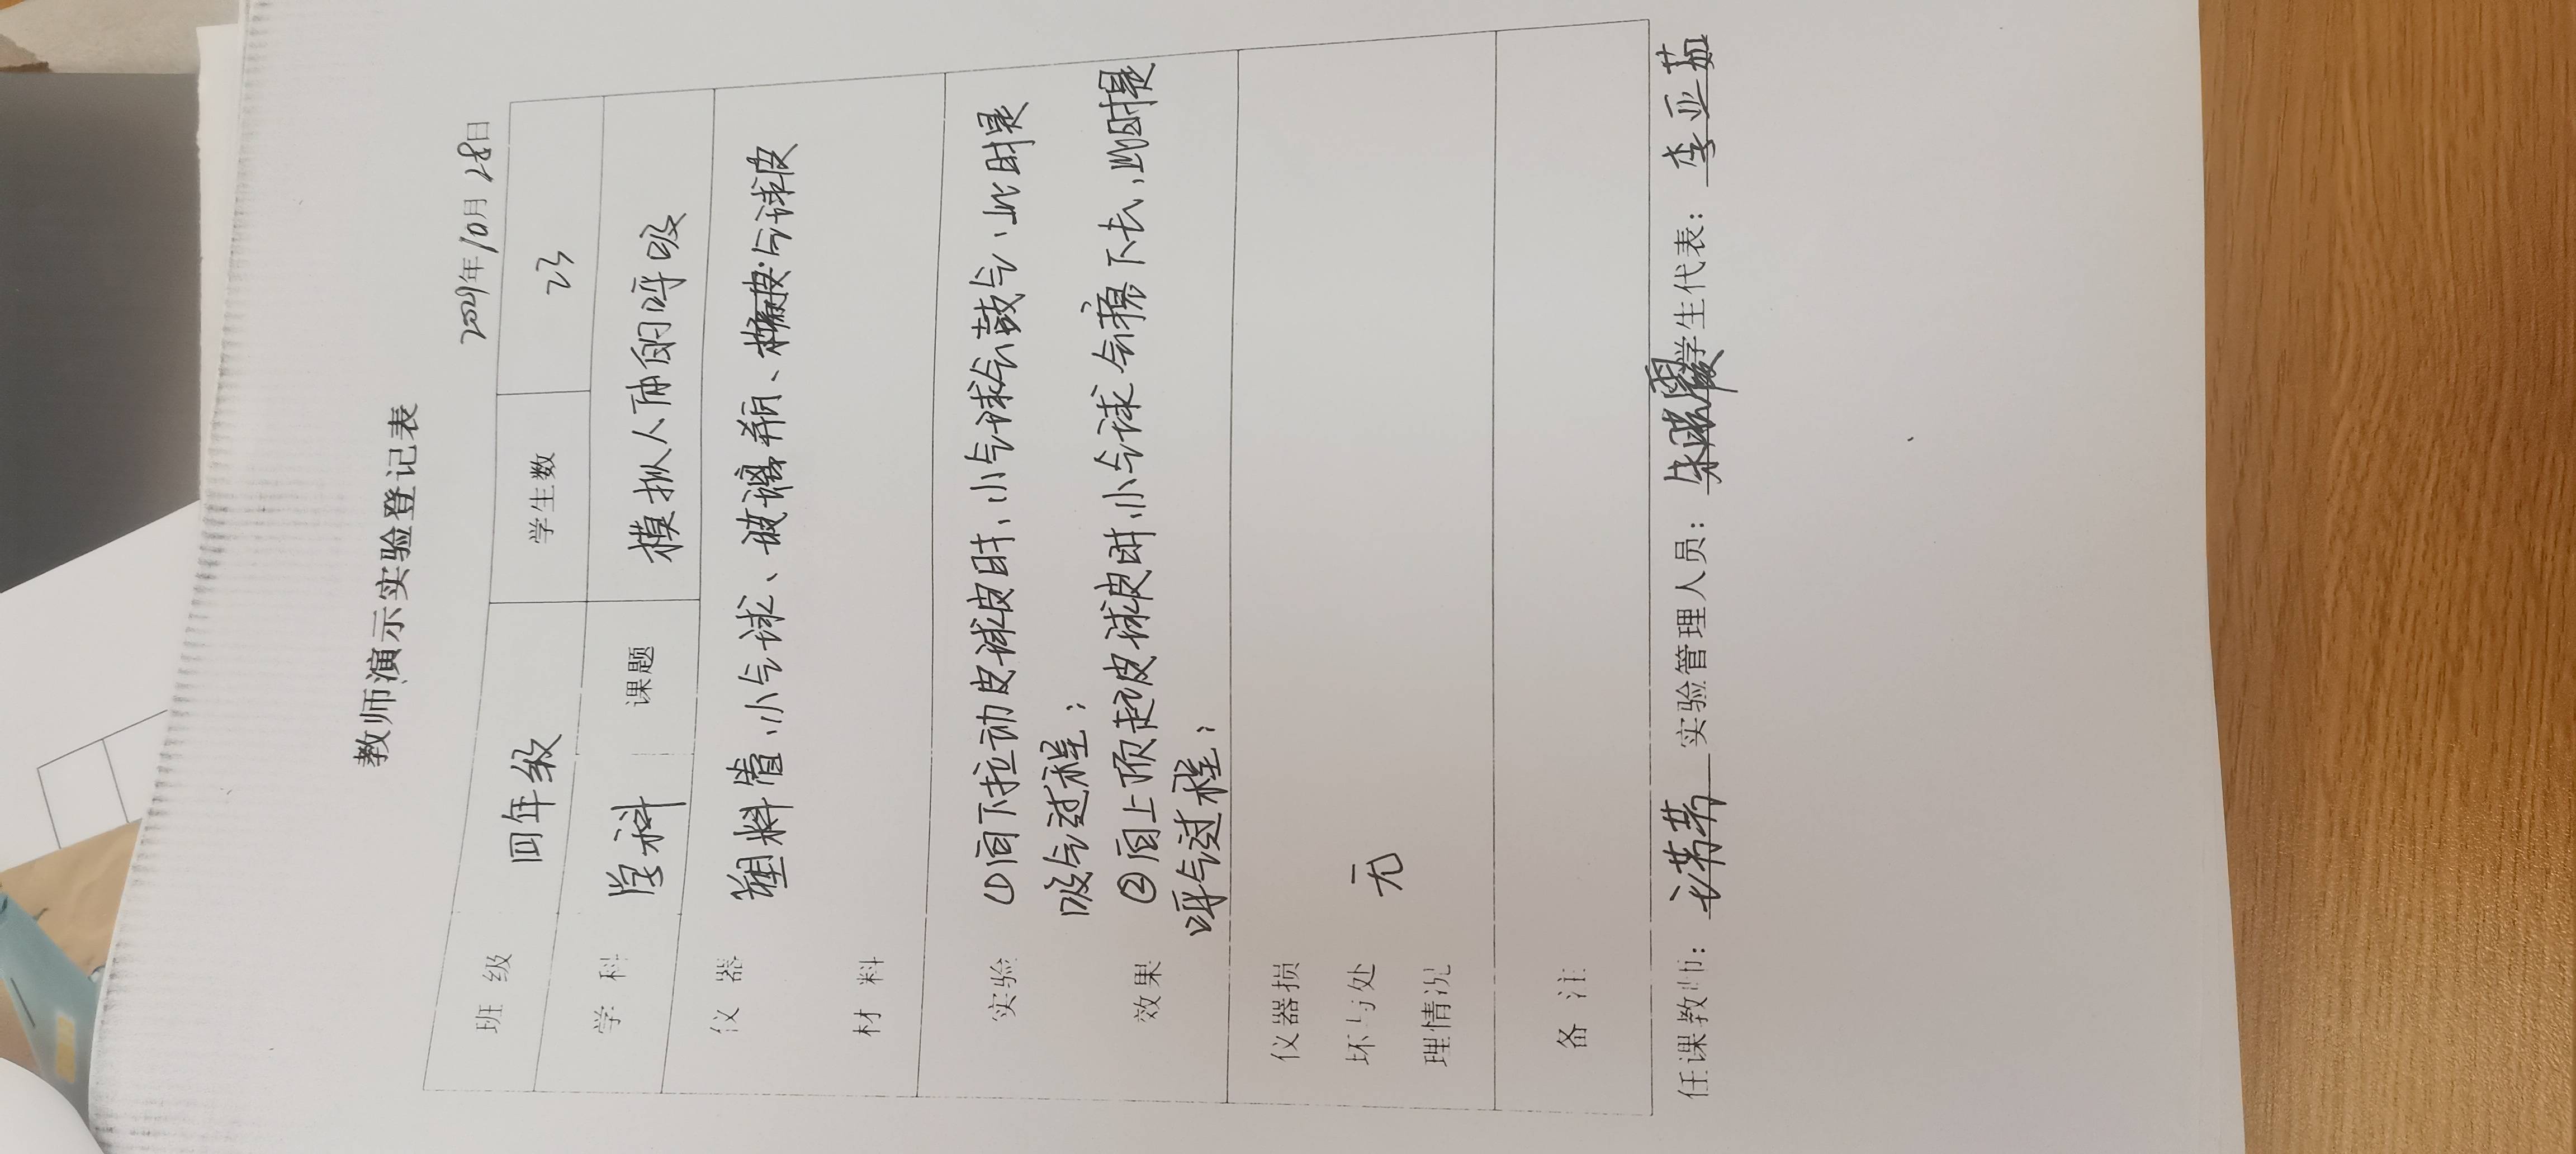 教师演示实验登记表
年10月28日
班 级 四年级 学生数 23
学 科 科 课题 模拟人体的呼吸
仪 器 塑料管、小气球、玻璃瓶、气球皮
材 料
实验 ①向下拉动皮球皮时,小气球会鼓气,此时是
吸气过程;
效果 ②向上顶起皮球皮时,小气球会瘪下去,此时是
呼气过程;
仪器损
坏与处 无
理情况
备 注
任课教师: 实验管理人员: 朱 学生代表: 李亚茹